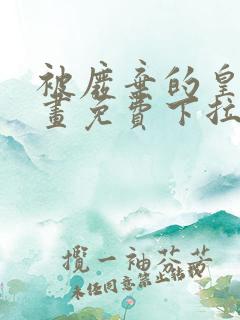 被废弃的皇
畫免費下拉
攬一袖芬芳
未经同意禁止转载